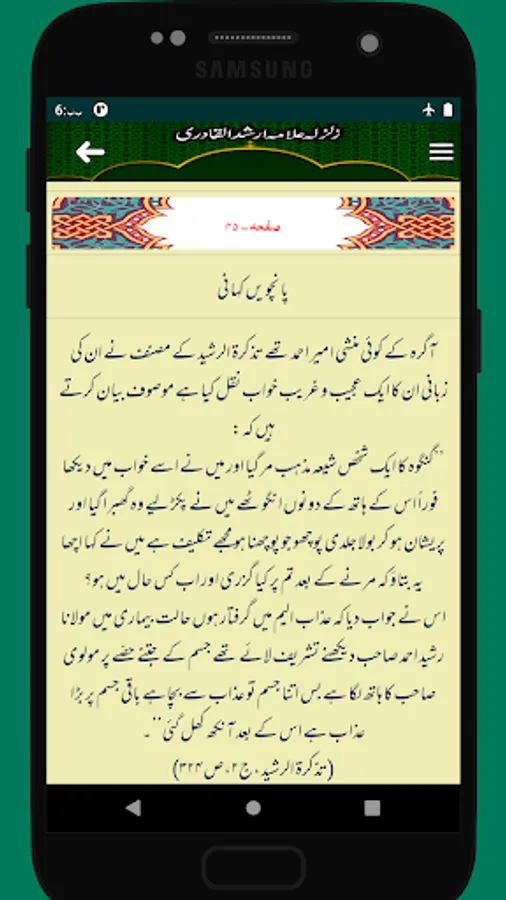 SAMSUNG
6:
زلزلہ علامہ ارشد القادری
صفحہ۔۔۳۵
پانچویں کہانی
آگرہ کے کوئی منشی امیر احمد تھے تذکرۃ الرشید کے مصنف نے ان کی
زبانی ان کا ایک عجیب و غریب خواب نقل کیا ہے موصوف بیان کرتے
ہیں کہ :
”گنگوہ کا ایک شخص شیعہ مذہب مر گیا اور میں نے اسے خواب میں دیکھا
فوراً اس کے ہاتھ کے دونوں انگوٹھے میں نے پکڑ لیے وہ گھبرا گیا اور
پریشان ہو کر بولا جلدی پوچھو جو پوچھنا ہو مجھے تکلیف ہے میں نے کہا اچھا
یہ بتاؤ کہ مرنے کے بعد تم پر کیا گزری اور اب کس حال میں ہو؟
اس نے جواب دیا کہ عذاب الیم میں گرفتار ہوں حالت بیماری میں مولانا
رشید احمد صاحب دیکھنے تشریف لائے تھے جسم کے جتنے حصے پر مولوی
صاحب کا ہاتھ لگا ہے بس اتنا جسم تو عذاب سے بچا ہے باقی جسم پر بڑا
عذاب ہے اس کے بعد آنکھ کھل گئی‘‘۔
(تذکرۃ الرشید، ج ۲، ص ۳۲۴)